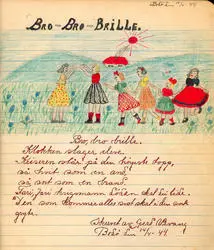 Bodö 14/1-44
BRO-BRO-BRILLE.
Bro, bro brille.
Klokken slager elleve.
Keiseren står på den høieste
så hvit som en and,
så sort som en brand.
Fari, fari krigsmann Döden skal du lide.
Den som kommer aller sist skal i den
gryte.
Skrevet av Gerd
Bodö 14/1-44